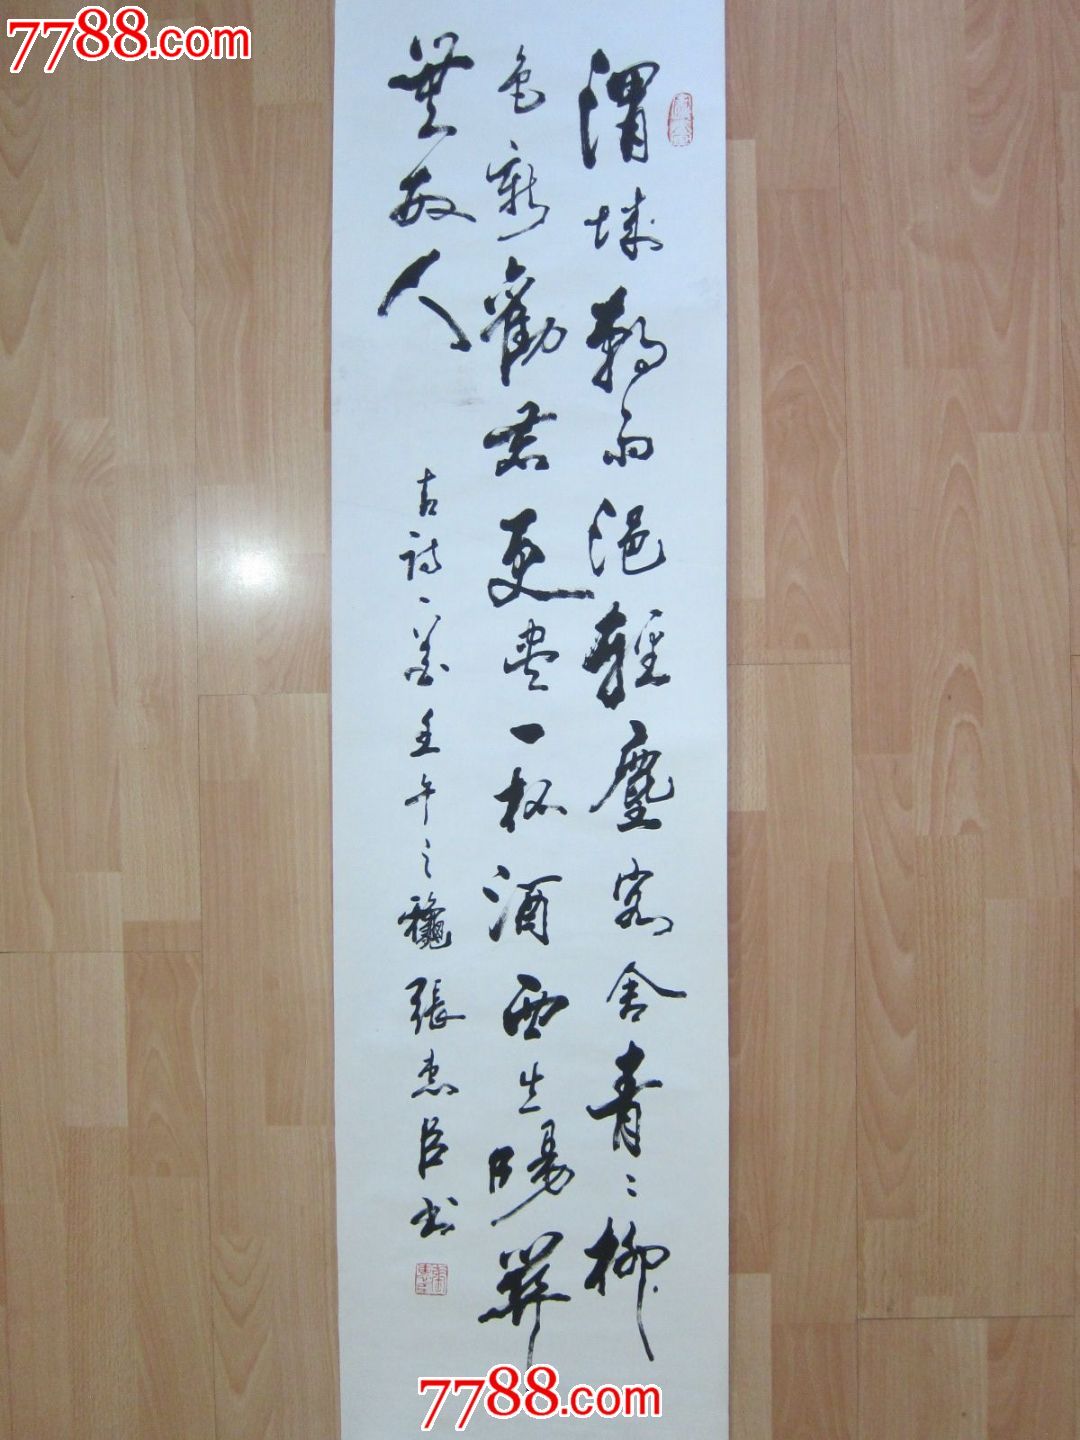 7788.com
渭城朝雨浥輕塵客舍青〻柳
色新勸君更盡一杯酒西出陽關
無故人
古詩一首壬午之龝張惠臣書
7788.com